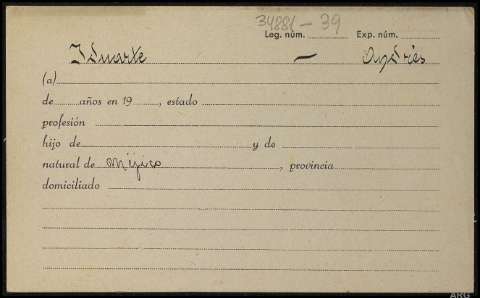 34881-39
Leg. núm. Exp. núm.
Iduarte — Andrés
(a)
de años en 19 , estado
profesión
hijo de y de
natural de Méjico , provincia
domiciliado
ARG